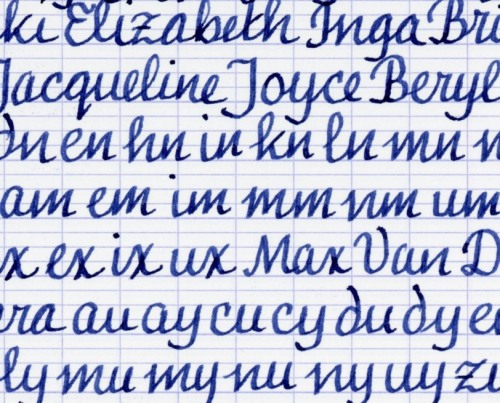 ki Elizabeth Inga Br
Jacqueline Joyce Beryl
en hn in kn ln mn n
am em im mm nm um
x ex ix ux Max Van D
ra au ay cu cy du dy e
ly mu my nu ny uy zu